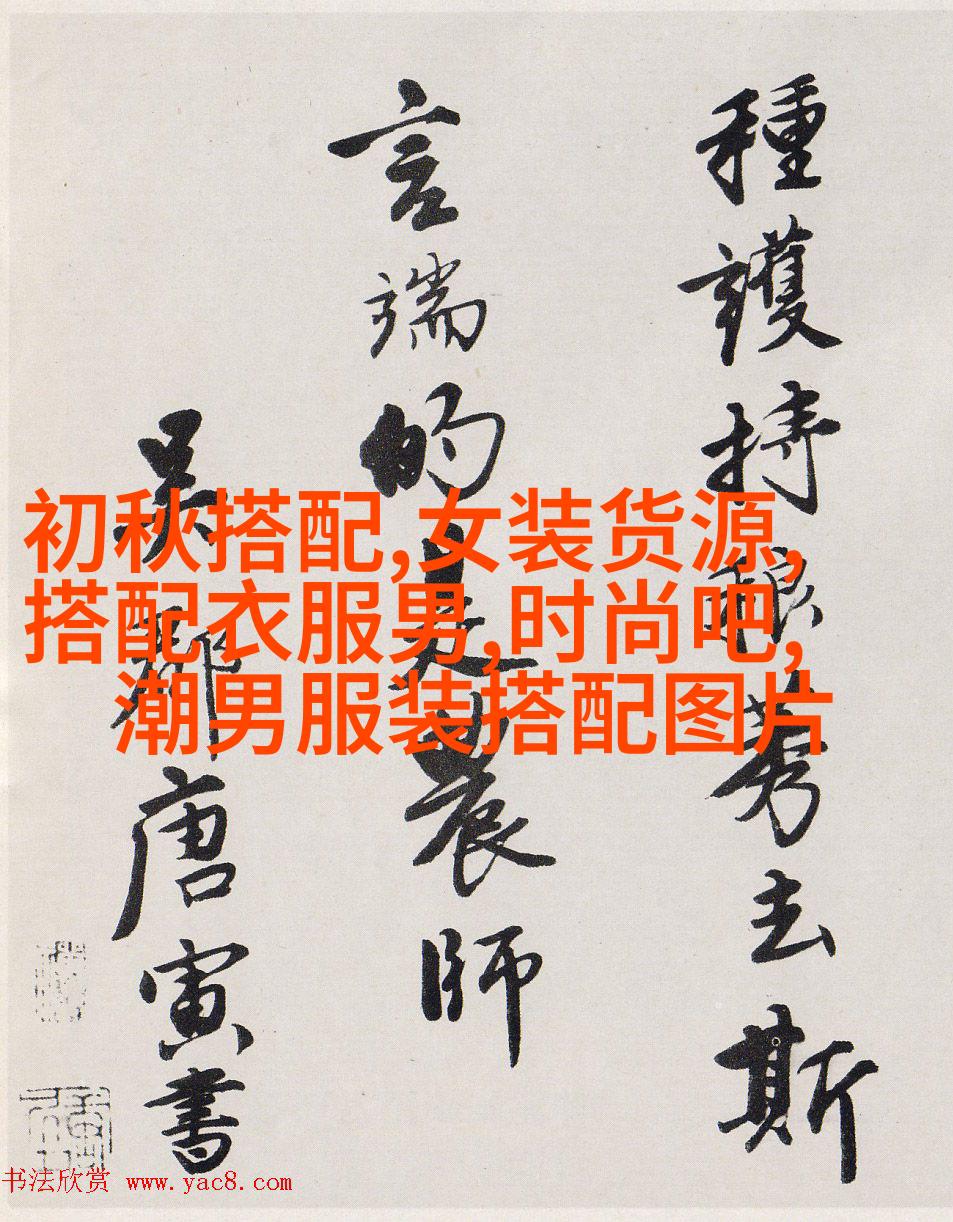 種護持稂莠去斯
言端的是農師
吳郡唐寅書
初秋搭配,女装货源,
搭配衣服男,时尚吧,
潮男服装搭配图片
书法欣赏 www.yac8.com